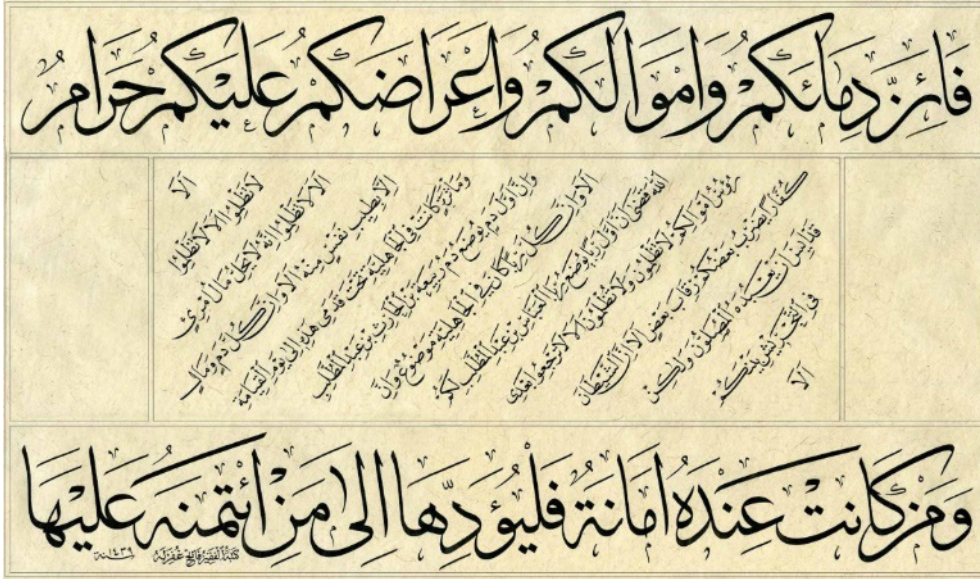 فَاِنَّ دِمَائَكُمْ وَاَمْوَالَكُمْ وَاَعْرَاضَكُمْ عَلَيْكُمْ حَرَامٌ
الا
لا تظلموا الا لا تظلموا
الا لا تظلموا انه لا يحل مال امرئ
الا بطيب نفس منه الا وان كل دم ومال
ومأثرة كانت في الجاهلية تحت قدمي هذه الى يوم القيامة
وان اول دم يوضع دم ربيعة بن الحارث بن عبد المطلب
الا وان كل ربا كان في الجاهلية موضوع وان
الله قضى ان اول ربا يوضع ربا العباس بن عبد المطلب لكم
رؤس اموالكم لا تظلمون ولا تظلمون الا لا ترجعوا بعدى
كفارا يضرب بعضكم رقاب بعض الا ان الشيطان
قد ايس ان يعبده المصلون ولكن
فى التحريش بينكم
الا
وَمَنْ كَانَتْ عِنْدَهُ اَمَانَةٌ فَلْيُؤَدِّهَا اِلٰى مَنِ ائْتَمَنَهُ عَلَيْهَا
كتبه الفقير فاتح غفر له سنة